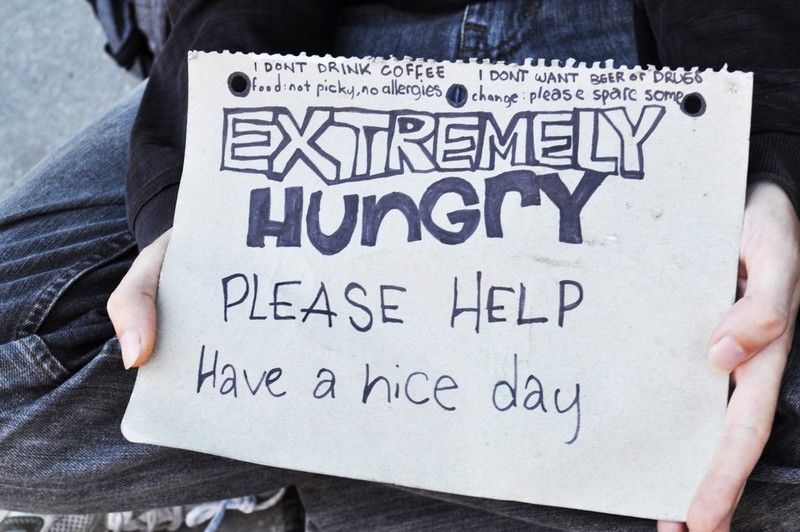 I DONT DRINK COFFEE
food: not picky, no allergies
I DONT WANT BEER or DRUGS
change: please spare some
EXTREMELY
HUnGrY
PLEASE HELP
Have a nice day